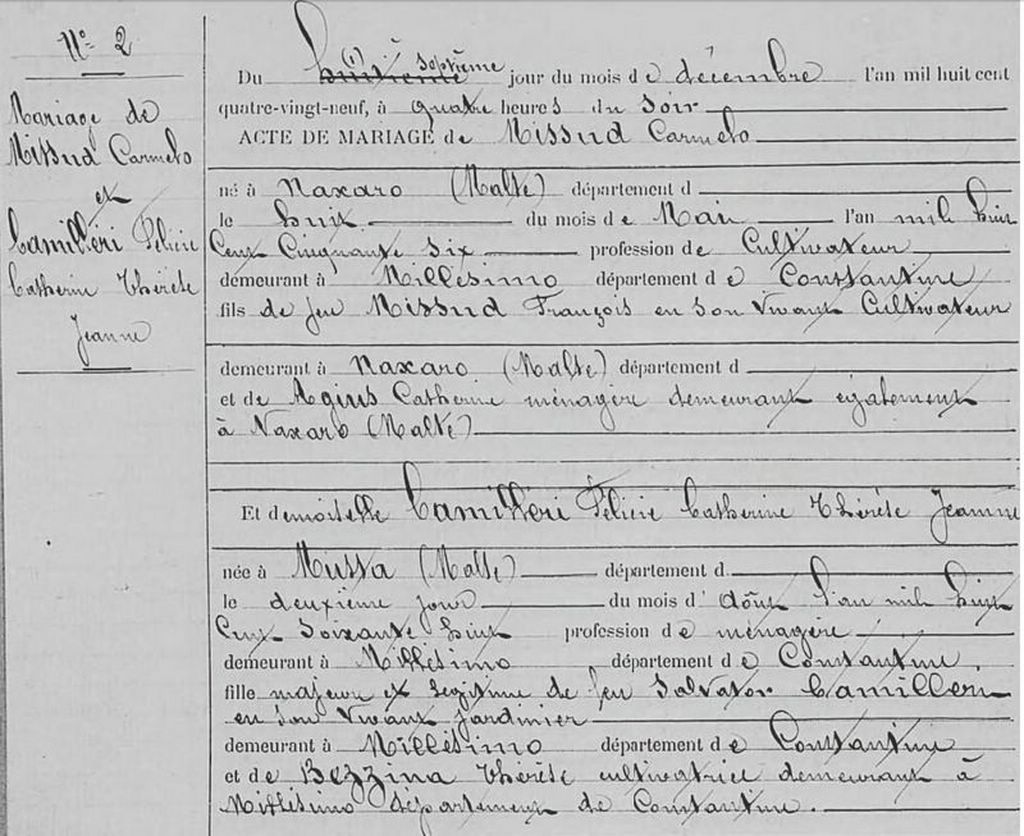 N° 2
Mariage de
Missud Carmelo
et
Camilléri Félicie
Catherine Thérèse
Jeanne
(1) septième
Du huitième jour du mois de décembre l'an mil huit cent
quatre-vingt-neuf, à quatre heures du soir
ACTE DE MARIAGE de Missud Carmelo
né à Naxaro (Malte) département d
le huit du mois de Mai l'an mil huit
Cent Cinquante six profession de Cultivateur
demeurant à Millésimo département de Constantine
fils de feu Missud François en son vivant Cultivateur
demeurant à Naxaro (Malte) département d
et de Agius Catherine ménagère demeurant également
à Naxaro (Malte)
Et demoiselle Camilléri Félicie Catherine Thérèse Jeanne
née à Mussa (Malte) département d
le deuxième jour du mois d'août l'an mil huit
Cent Soixante huit profession de ménagère
demeurant à Millésimo département de Constantine,
fille majeure et légitime de feu Salvator Camilleri
en son vivant jardinier
demeurant à Millésimo département de Constantine
et de Bezzina Thérèse cultivatrice demeurant à
Millésimo département de Constantine.